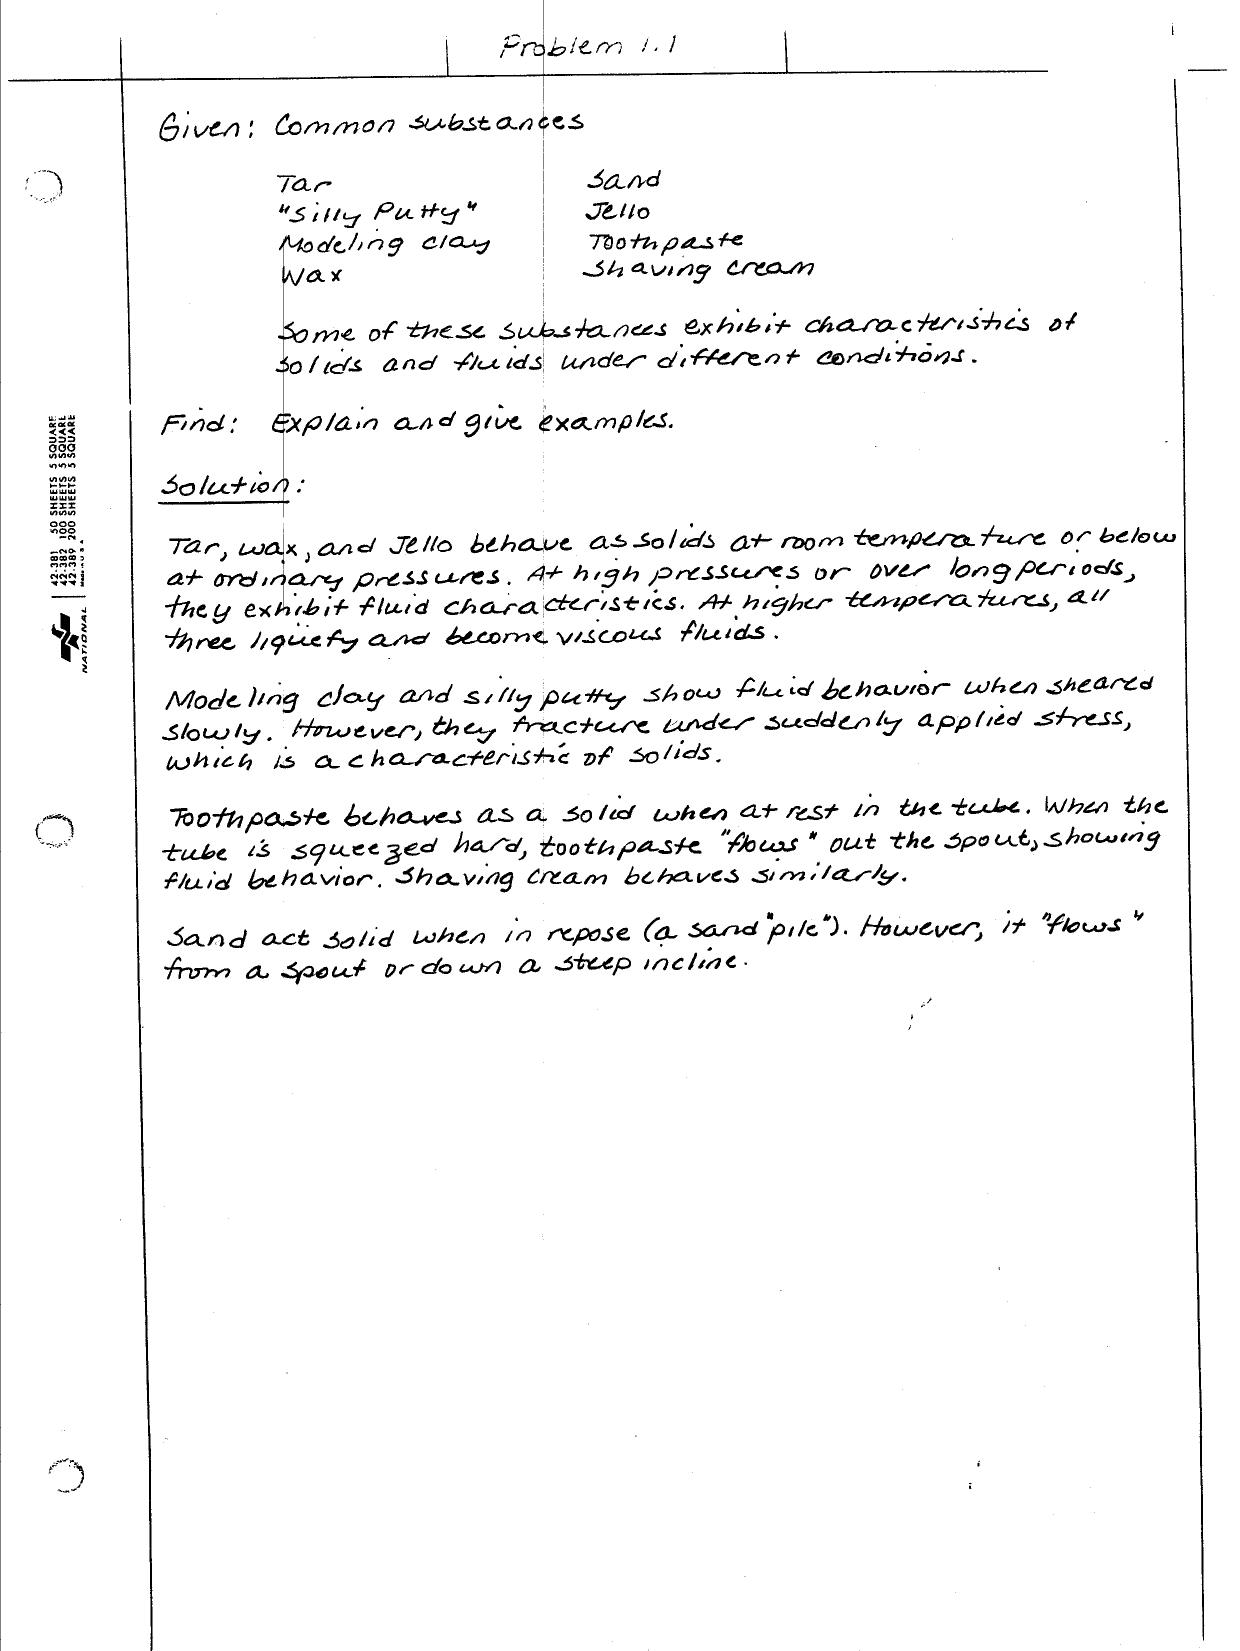 Problem 1.1
Given: Common substances
Tar Sand
"Silly Putty" Jello
Modeling clay Toothpaste
Wax Shaving cream
Some of these substances exhibit characteristics of
solids and fluids under different conditions.
Find: Explain and give examples.
Solution:
Tar, wax, and Jello behave as solids at room temperature or below
at ordinary pressures. At high pressures or over long periods,
they exhibit fluid characteristics. At higher temperatures, all
three liquefy and become viscous fluids.
Modeling clay and silly putty show fluid behavior when sheared
slowly. However, they fracture under suddenly applied stress,
which is a characteristic of solids.
Toothpaste behaves as a solid when at rest in the tube. When the
tube is squeezed hard, toothpaste "flows" out the spout, showing
fluid behavior. Shaving cream behaves similarly.
Sand act solid when in repose (a sand "pile"). However, it "flows"
from a spout or down a steep incline.
42-381 50 SHEETS 5 SQUARE
42-382 100 SHEETS 5 SQUARE
42-389 200 SHEETS 5 SQUARE
NATIONAL